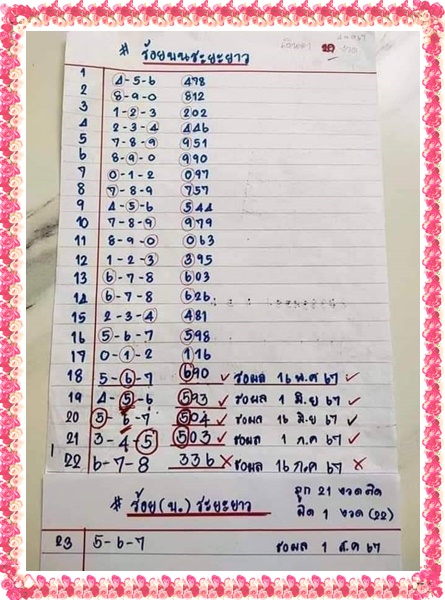 # ร้อยบนระยะยาว
1 4-5-6 478
2 8-9-0 812
3 1-2-3 202
4 2-3-4 446
5 7-8-9 951
6 8-9-0 990
7 0-1-2 097
8 7-8-9 757
9 4-5-6 544
10 7-8-9 979
11 8-9-0 063
12 1-2-3 395
13 6-7-8 603
14 6-7-8 626
15 2-3-4 481
16 5-6-7 598
17 0-1-2 116
18 5-6-7 690 ✓ รอผล 16 พ.ค 67 ✓
19 4-5-6 593 ✓ รอผล 1 มิ.ย 67 ✓
20 5-6-7 504 ✓ รอผล 16 มิ.ย 67 ✓
21 3-4-5 503 ✓ รอผล 1 ก.ค 67 ✓
22 6-7-8 336 × รอผล 16 ก.ค 67 ×
# ร้อย(บ.)ระยะยาว
ถูก 21 งวดติด
ผิด 1 งวด (22)
23 5-6-7 รอผล 1 ส.ค 67